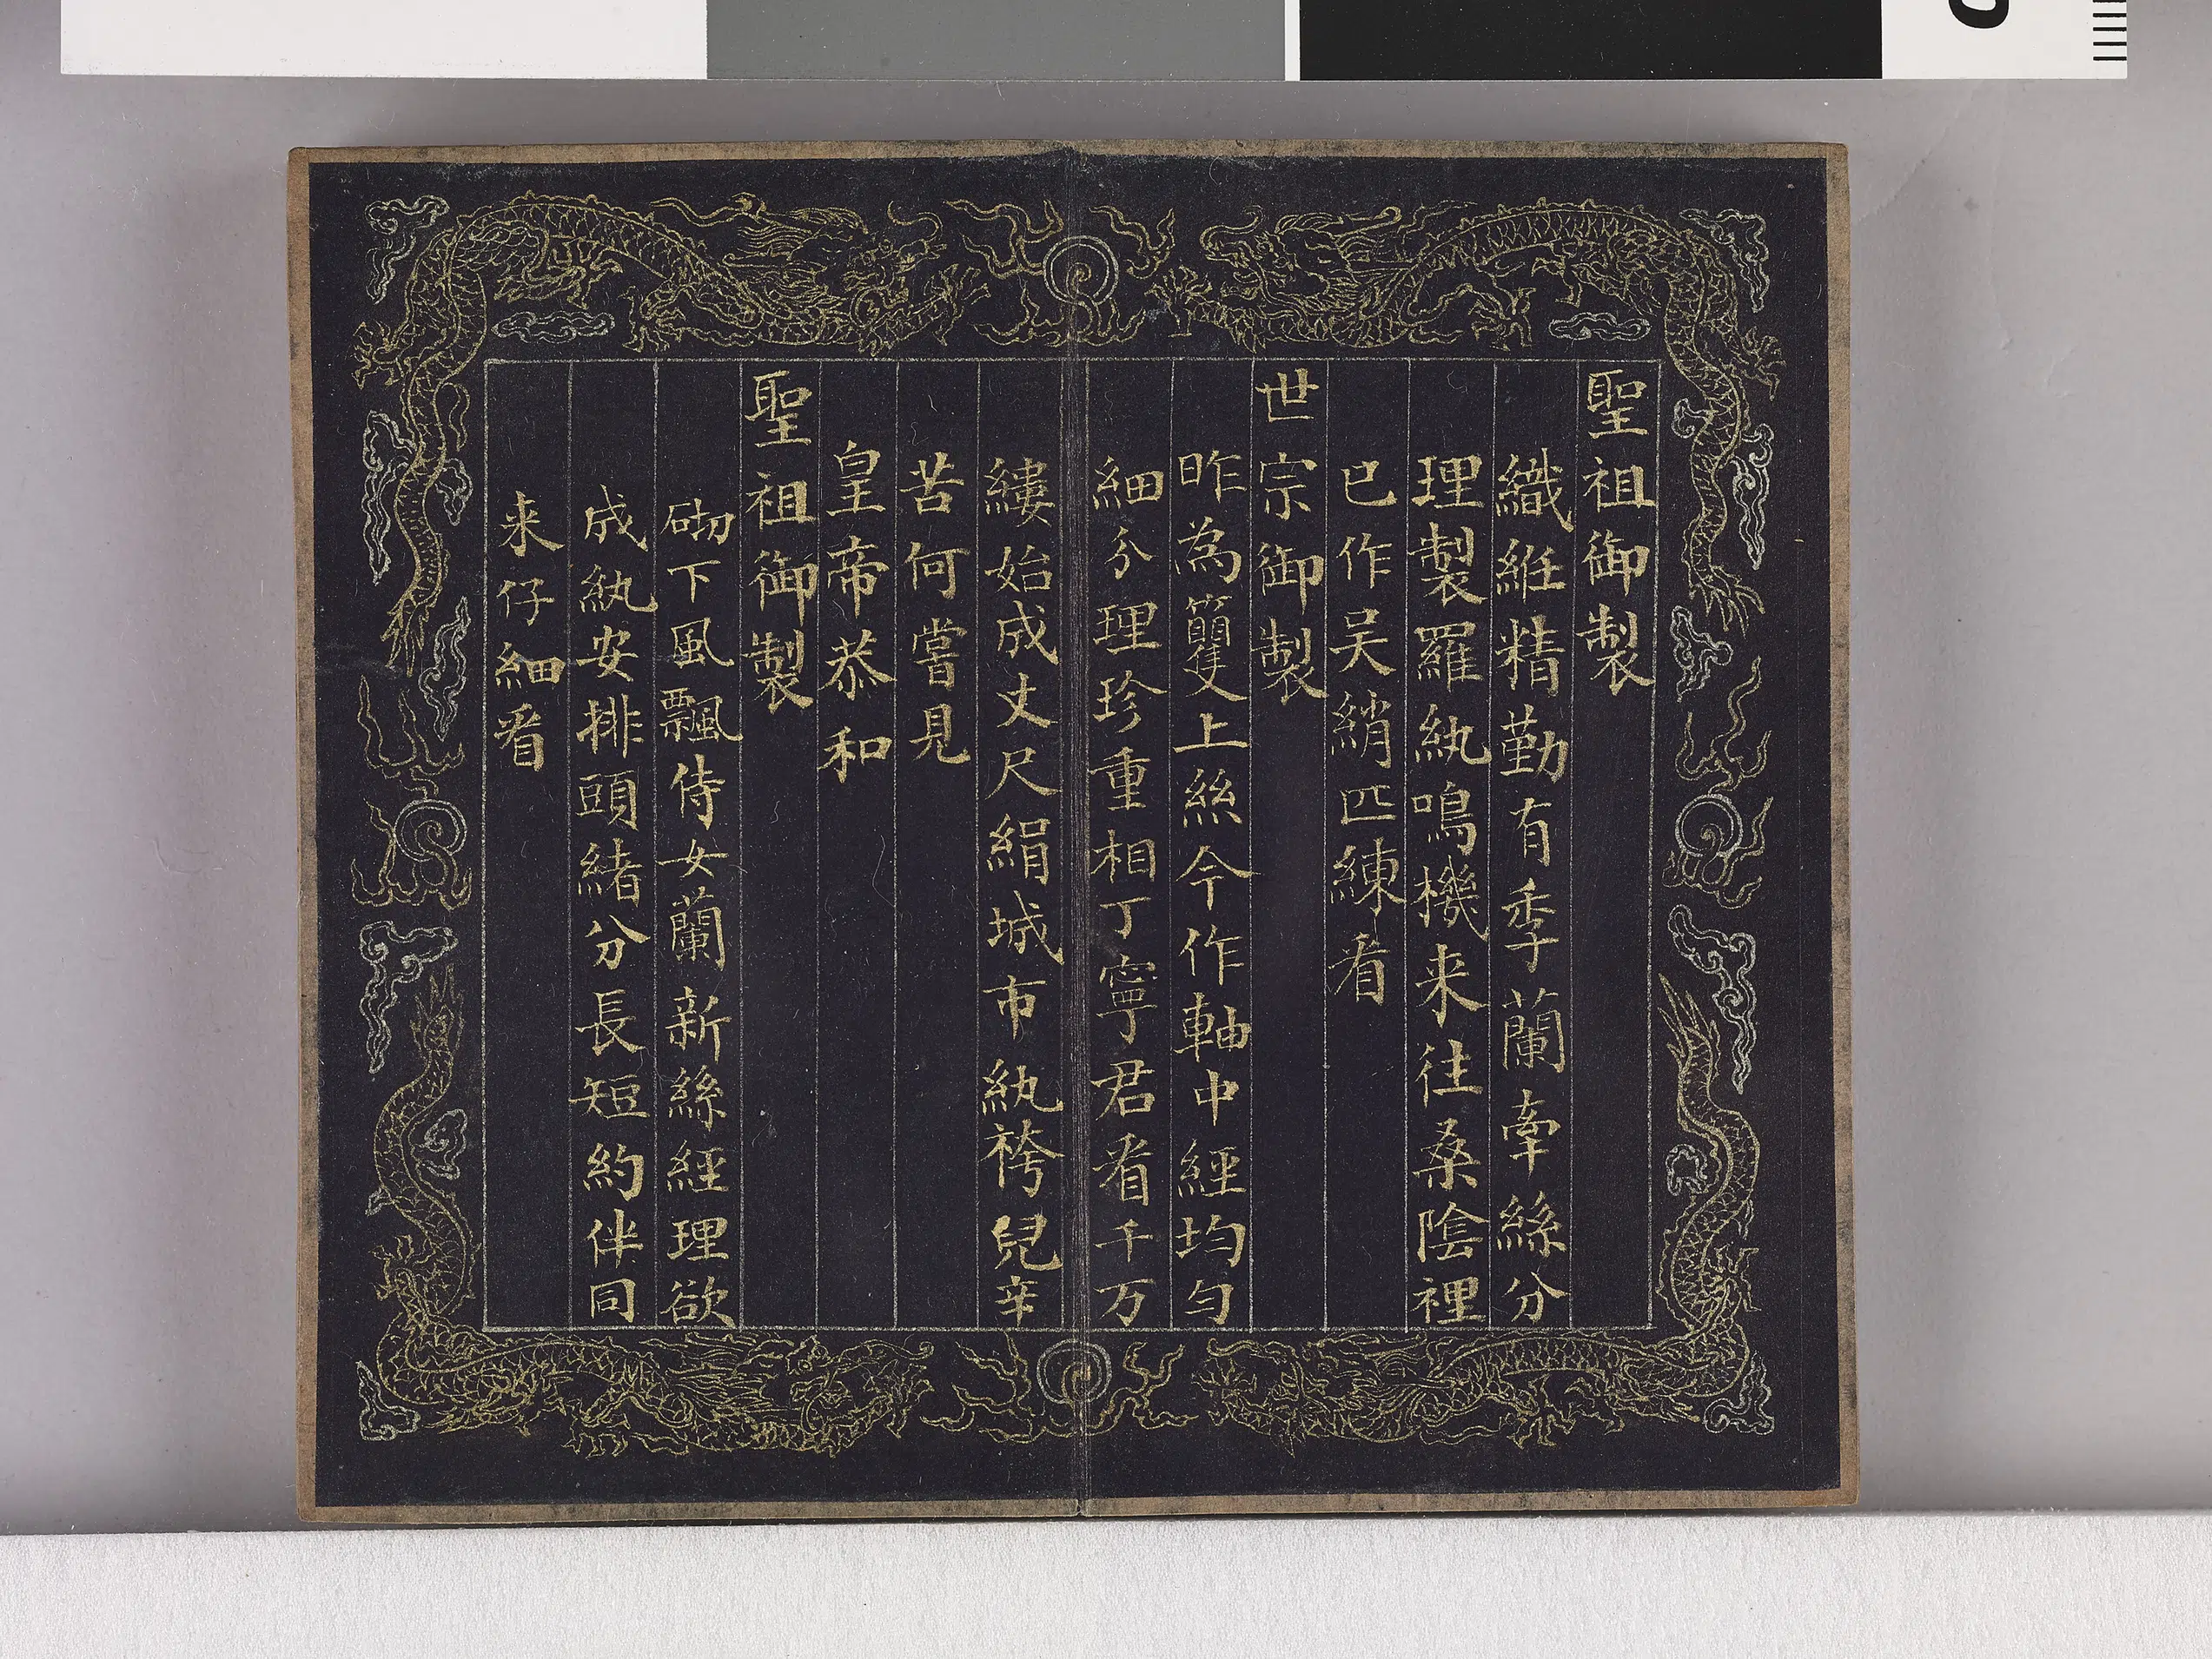 聖祖御製
織紝精勤有季蘭牽絲分
理製羅紈鳴機来往桑陰裡
已作吴綃匹練看
世宗御製
昨為籰上絲今作軸中經均勻
細分理珍重相丁寧君看千万
縷始成丈尺絹城市紈袴兒辛
苦何嘗見
皇帝恭和
聖祖御製
砌下風飄侍女蘭新絲經理欲
成紈安排頭緒分長短約伴同
来仔細看